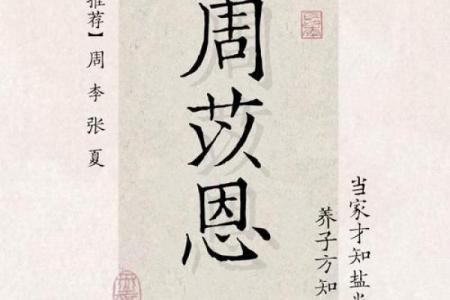 当家才知盐
养子方知
周苡恩
推荐】周 李 张 夏